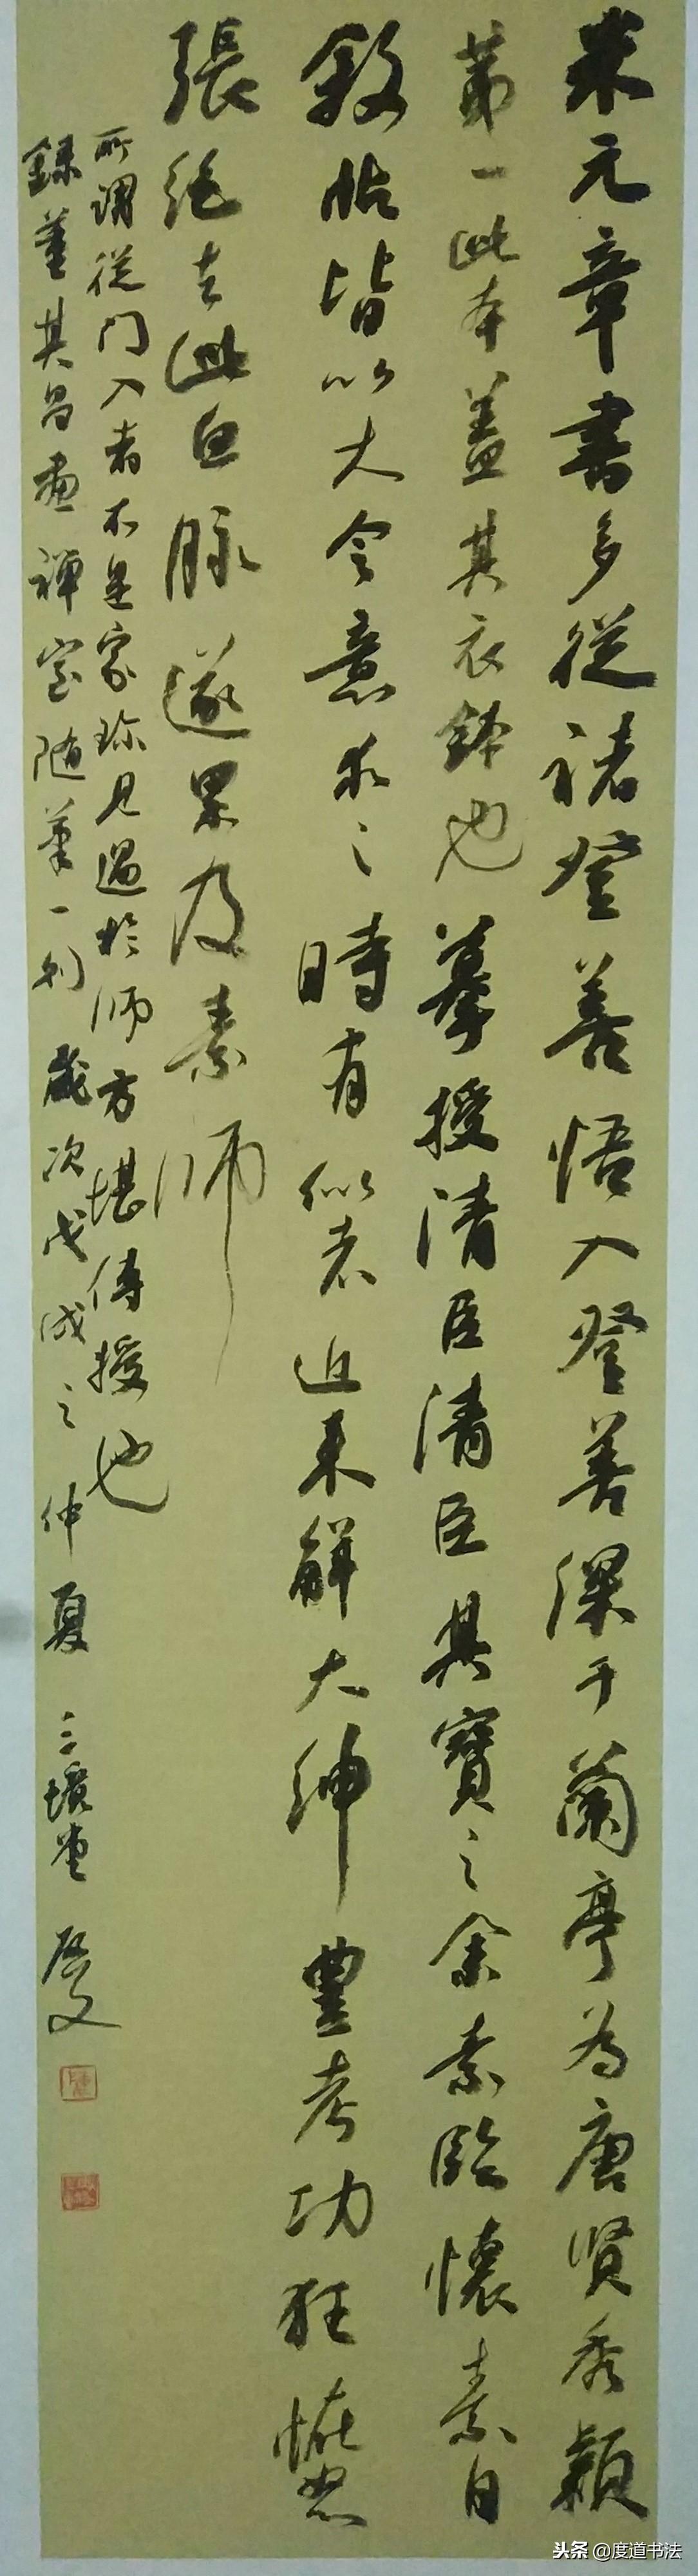 米元章書多從褚登善悟入登善深于蘭亭為唐賢秀穎
第一此本盖其衣鉢也摹授清臣清臣其寶之余素臨懷素自
敘帖皆以大令意求之時有似者近来解大紳豐考功狂怪怒
張絕去此血脉遂累及素師
所謂從门入者不是家珍見過於师方堪傳授也
錄董其昌畫禅室随筆一則歲次戊戌之仲夏三壙堂
头条@度道书法